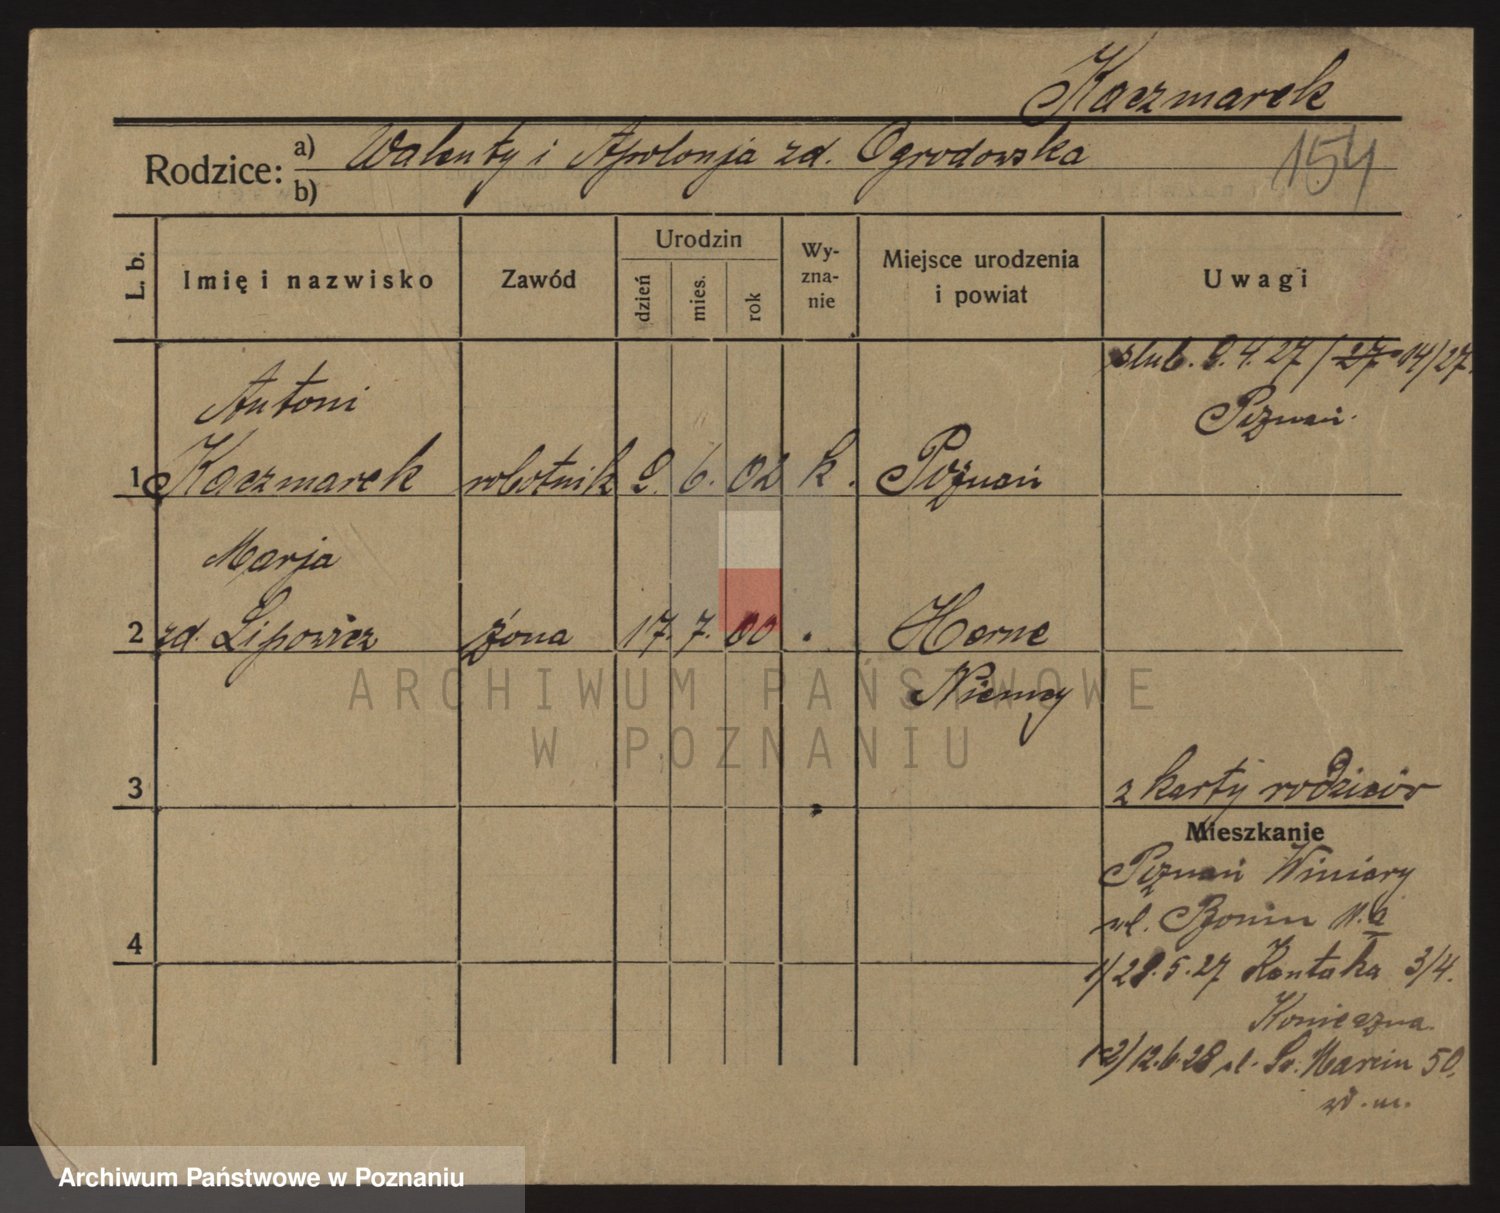 Kaczmarek
Rodzice: a) Walenty i Apolonja zd. Ogrodowska
b)
154
L. b.
Imię i nazwisko
Zawód
Urodzin
dzień
mies.
rok
Wy-
zna-
nie
Miejsce urodzenia
i powiat
Uwagi
ślub. 9.4.27/ 27 14/27.
Poznań.
Antoni
1 Kaczmarek robotnik 9. 6. 02 k. Poznań
Marja
2 zd. Lipowicz żona 17. 7. 00 . Herne
Niemcy
3
z karty rodziców
Mieszkanie
Poznań Winiary
ul. Bonin
1/28.5.27 Kantaka 3/4.
Konieczna
1-2/12.6.28 ul. Św. Marcin 50.
4
ARCHIWUM PAŃSTWOWE
W POZNANIU
Archiwum Państwowe w Poznaniu